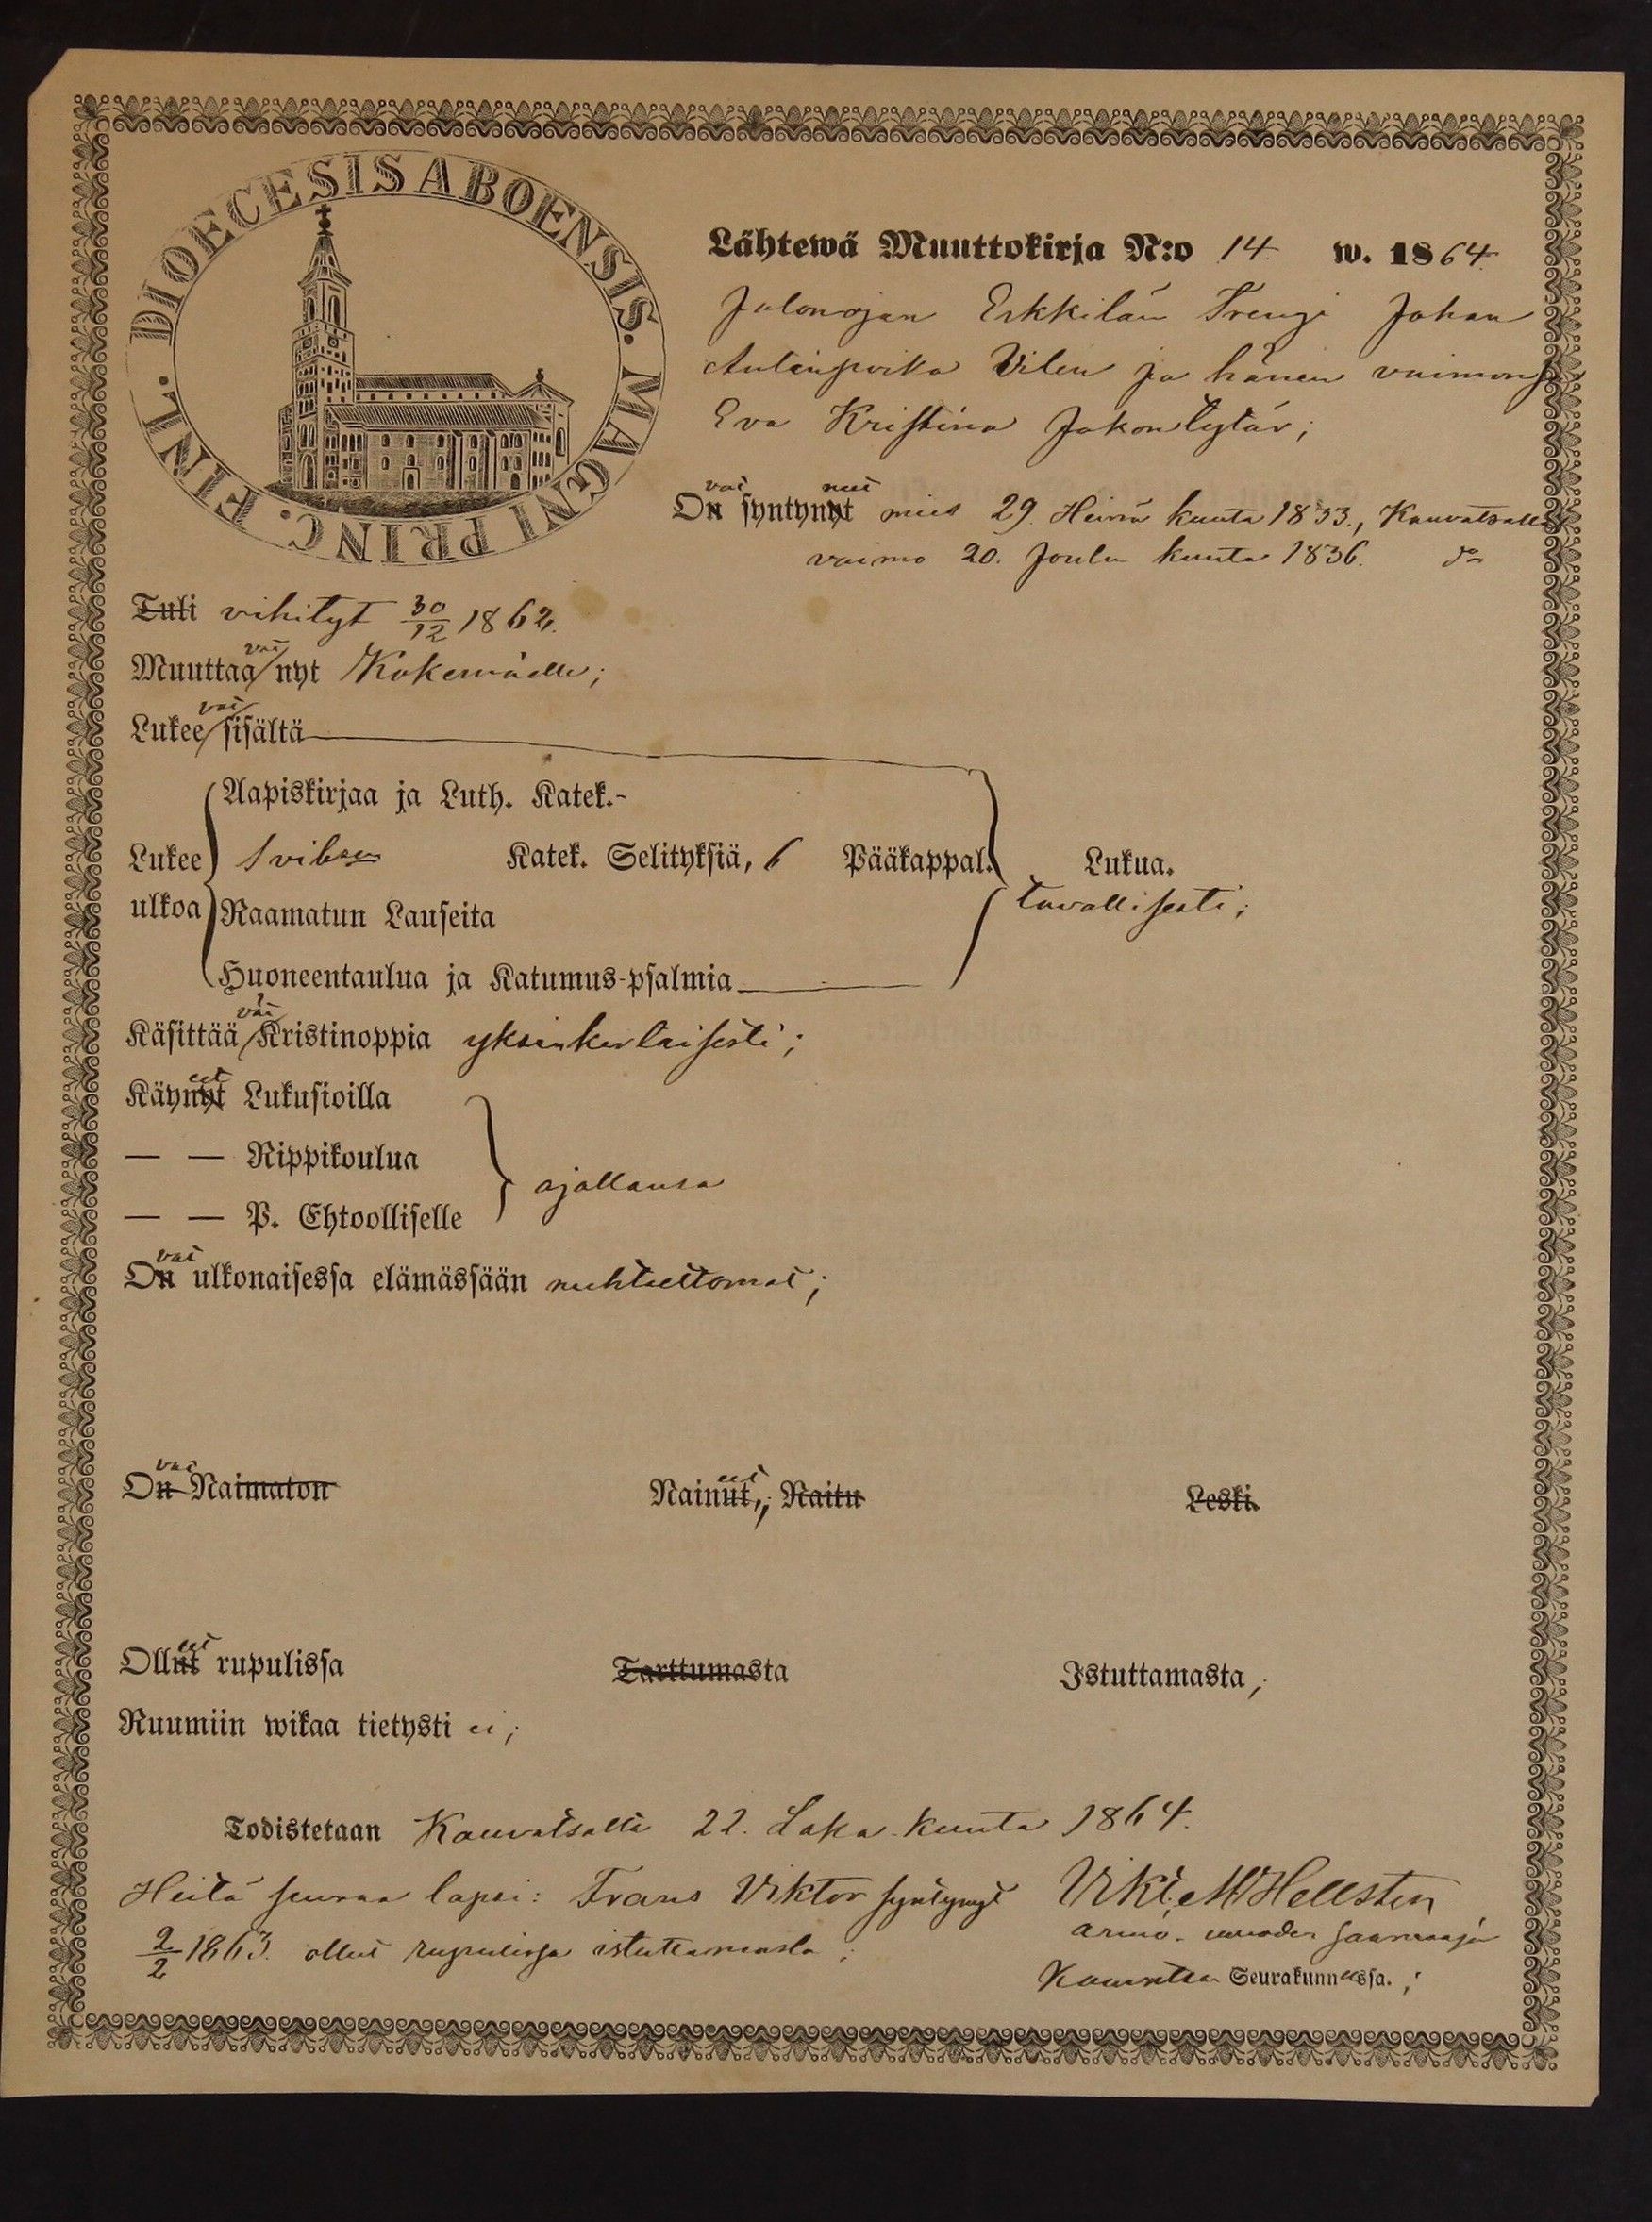 DIOECESIS ABOENSIS. MAGNI PRINC. FINL.
Lähtewä Muuttokirja N:o 14. w. 1864.
Jalonojan Erkkilän Trengi Johan
Antinpoika Vilen ja hänen vaimonsa
Eva Kristina Jakontytär;
vat neet
On syntynyt mies 29. Heinä kuuta 1833., Kauvatsalla
vaimo 20. Joulu kuuta 1836. do
Tuli vihityt 30/12 1862.
vat
Muuttaa nyt Kokemäelle;
vat
Lukee sisältä
Aapiskirjaa ja Luth. Katek.-
Lukee Katek. Selityksiä, 6 Pääkappal. Lukua.
ulkoa Raamatun Lauseita tavallisesti;
Huoneentaulua ja Katumus-psalmia
vat
Käsittää Kristinoppia yksinkertaisesti;
eet
Käynyt Lukusioilla
— — Rippikoulua
ajallansa
— — P. Ehtoolliselle
vat
On ulkonaisessa elämässään nuhteettomat;
vat eet
On Naimaton Nainut,; Naitu Leski.
eet
Ollut rupulissa Tarttumasta Istuttamasta;
Ruumiin wikaa tietysti ei;
Todistetaan Kauvatsalla 22. Loka-kuuta 1864.
Heitä seuraa lapsi: Frans Viktor syntynyt Hellsten
2/2 1863. ollut rupulissa istuttamasta; armo-vuoden saarnaaja
Kauvatsan Seurakunnassa.;